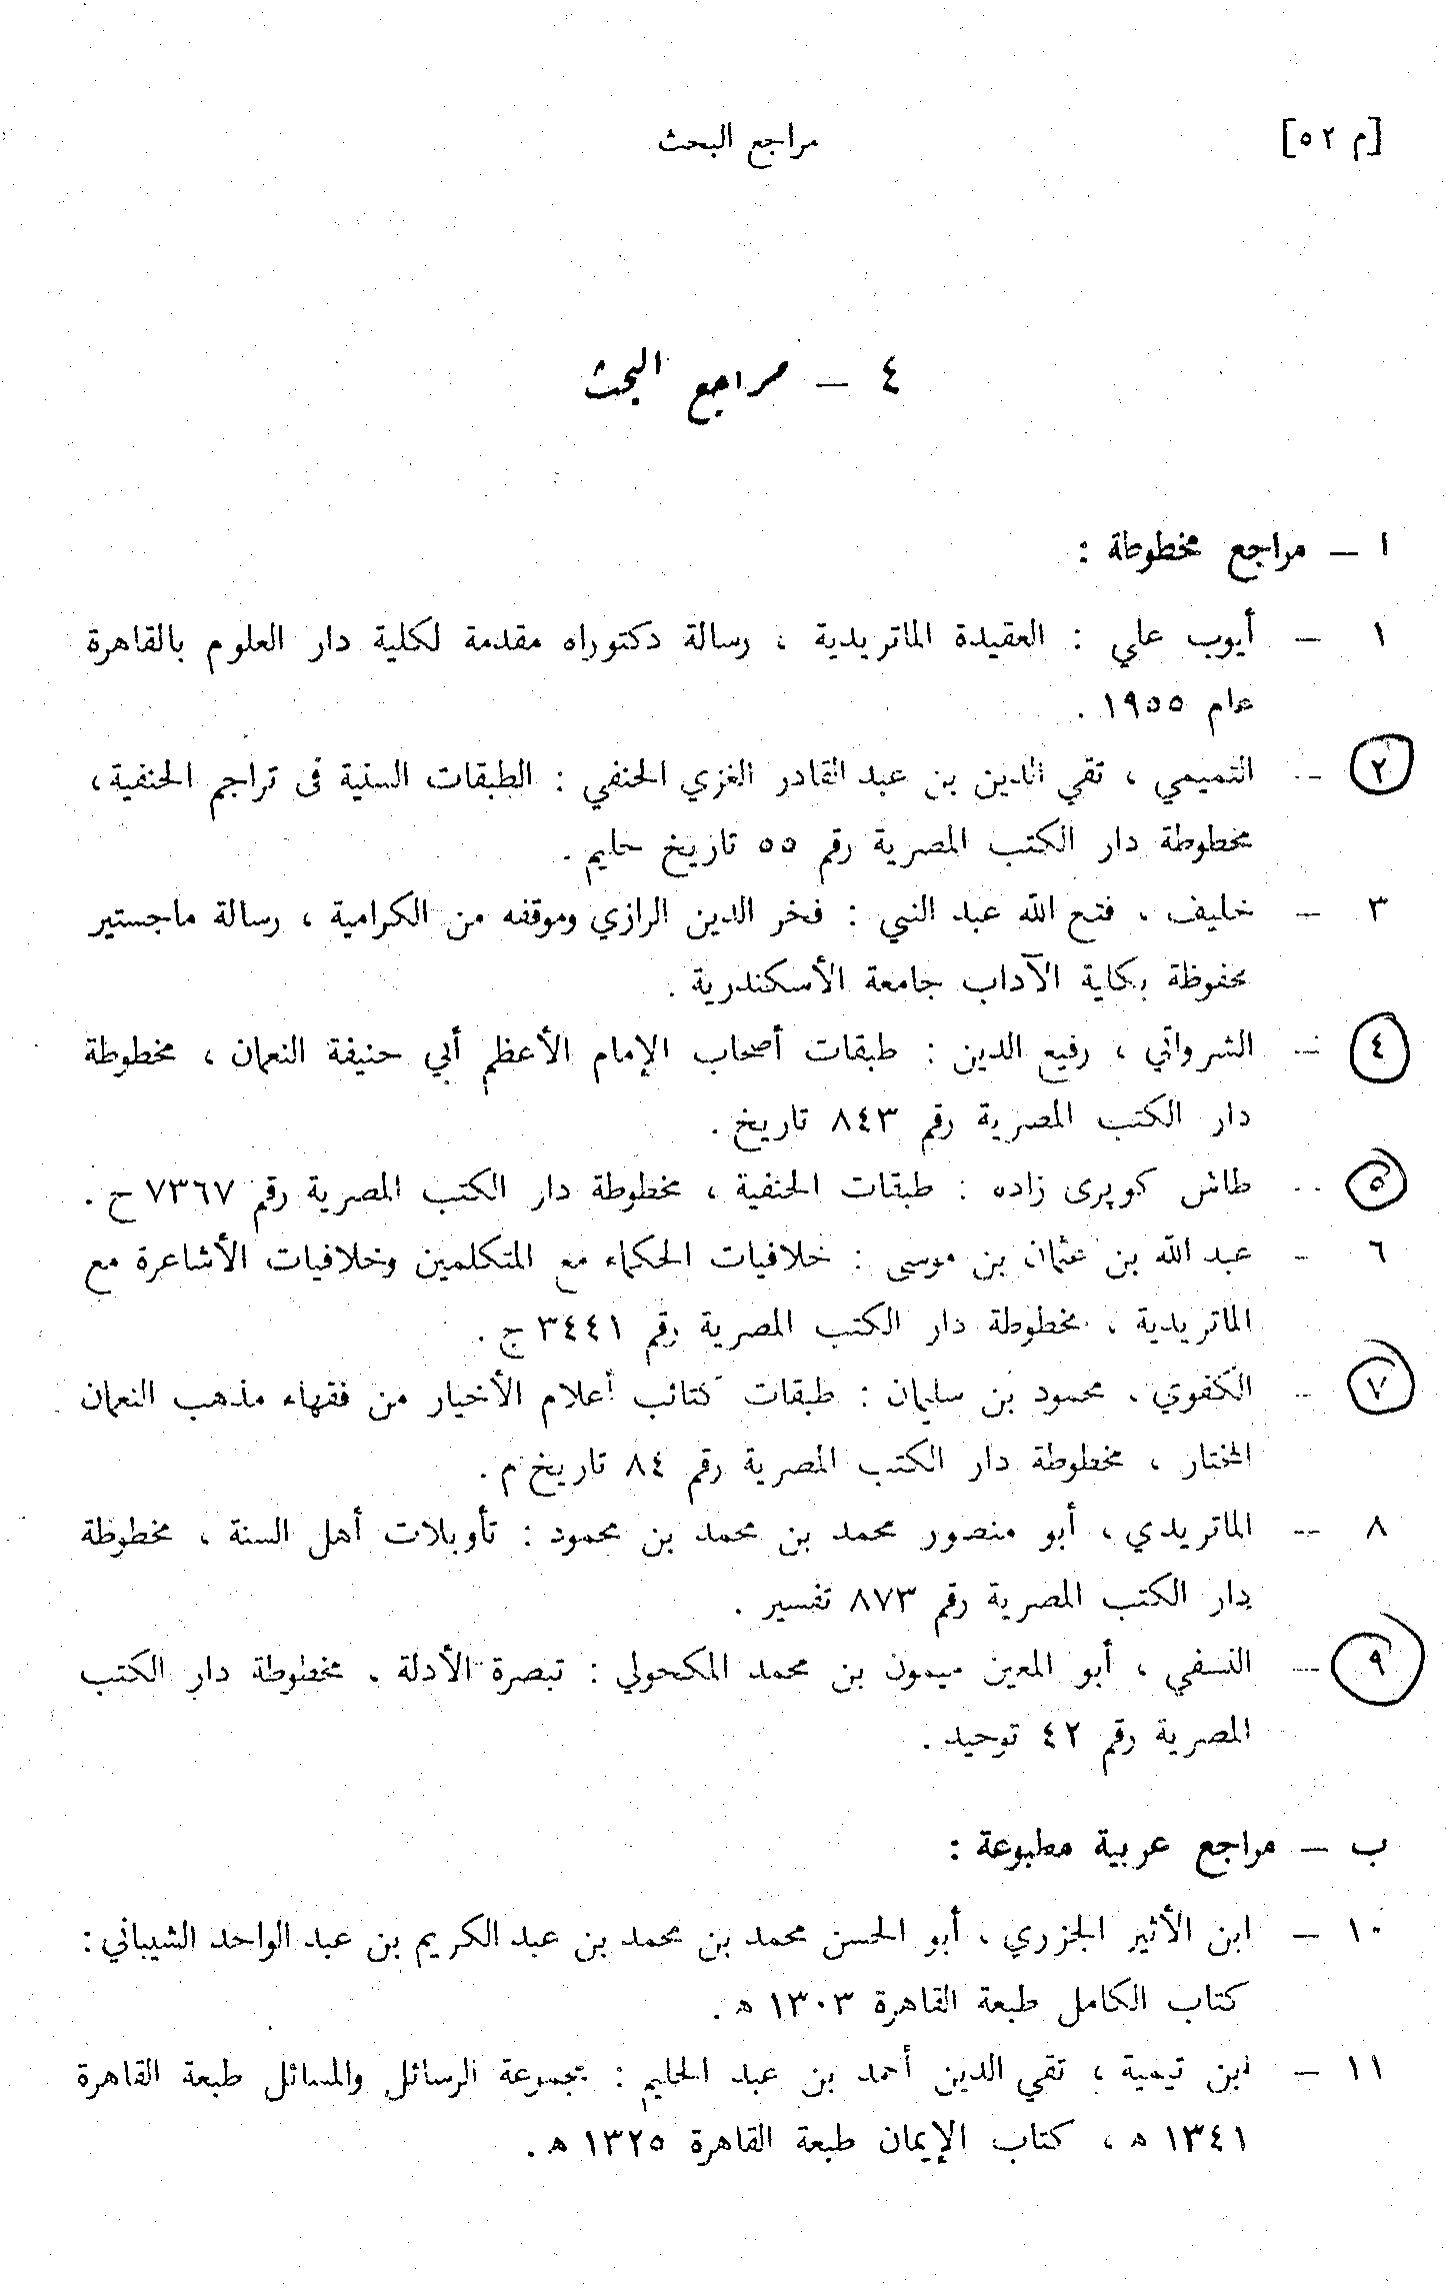 [م ٥٢] مراجع البحث
٤ – مراجع البحث
ا – مراجع مخطوطة :
١ – أيوب علي : العقيدة الماتريدية ، رسالة دكتوراه مقدمة لكلية دار العلوم بالقاهرة
عام ١٩٥٥ .
٢ – التميمي ، تقي الدين بن عبد القادر الغزي الحنفي : الطبقات السنية فى تراجم الحنفية ،
مخطوطة دار الكتب المصرية رقم ٥٥ تاريخ حليم .
٣ – خليف ، فتح الله عبد النبي : فخر الدين الرازي وموقفه من الكرامية ، رسالة ماجستير
محفوظة بكلية الآداب جامعة الأسكندرية .
٤ – الشرواني ، رفيع الدين : طبقات أصحاب الإمام الأعظم أبي حنيفة النعمان ، مخطوطة
دار الكتب المصرية رقم ٨٤٣ تاريخ .
٥ – طاش كوپرى زاده : طبقات الحنفية ، مخطوطة دار الكتب المصرية رقم ٧٣٦٧ ح .
٦ – عبد الله بن عثمان بن موسى : خلافيات الحكماء مع المتكلمين وخلافيات الأشاعرة مع
الماتريدية ، مخطوطة دار الكتب المصرية رقم ٣٤٤١ ج .
٧ – الكفوي ، محمود بن سليمان : طبقات كتائب أعلام الأخيار من فقهاء مذهب النعمان
المختار ، مخطوطة دار الكتب المصرية رقم ٨٤ تاريخ م .
٨ – الماتريدي ، أبو منصور محمد بن محمد بن محمود : تأويلات أهل السنة ، مخطوطة
بدار الكتب المصرية رقم ٨٧٣ تفسير .
٩ – النسفي ، أبو المعين ميمون بن محمد المكحولي : تبصرة الأدلة ، مخطوطة دار الكتب
المصرية رقم ٤٢ توحيد .
ب – مراجع عربية مطبوعة :
١٠ – ابن الأثير الجزري ، أبو الحسن محمد بن محمد بن عبد الكريم بن عبد الواحد الشيباني :
كتاب الكامل طبعة القاهرة ١٣٠٣ ه .
١١ – ابن تيمية ، تقي الدين أحمد بن عبد الحليم : مجموعة الرسائل والمسائل طبعة القاهرة
١٣٤١ ه ، كتاب الإيمان طبعة القاهرة ١٣٢٥ ه .